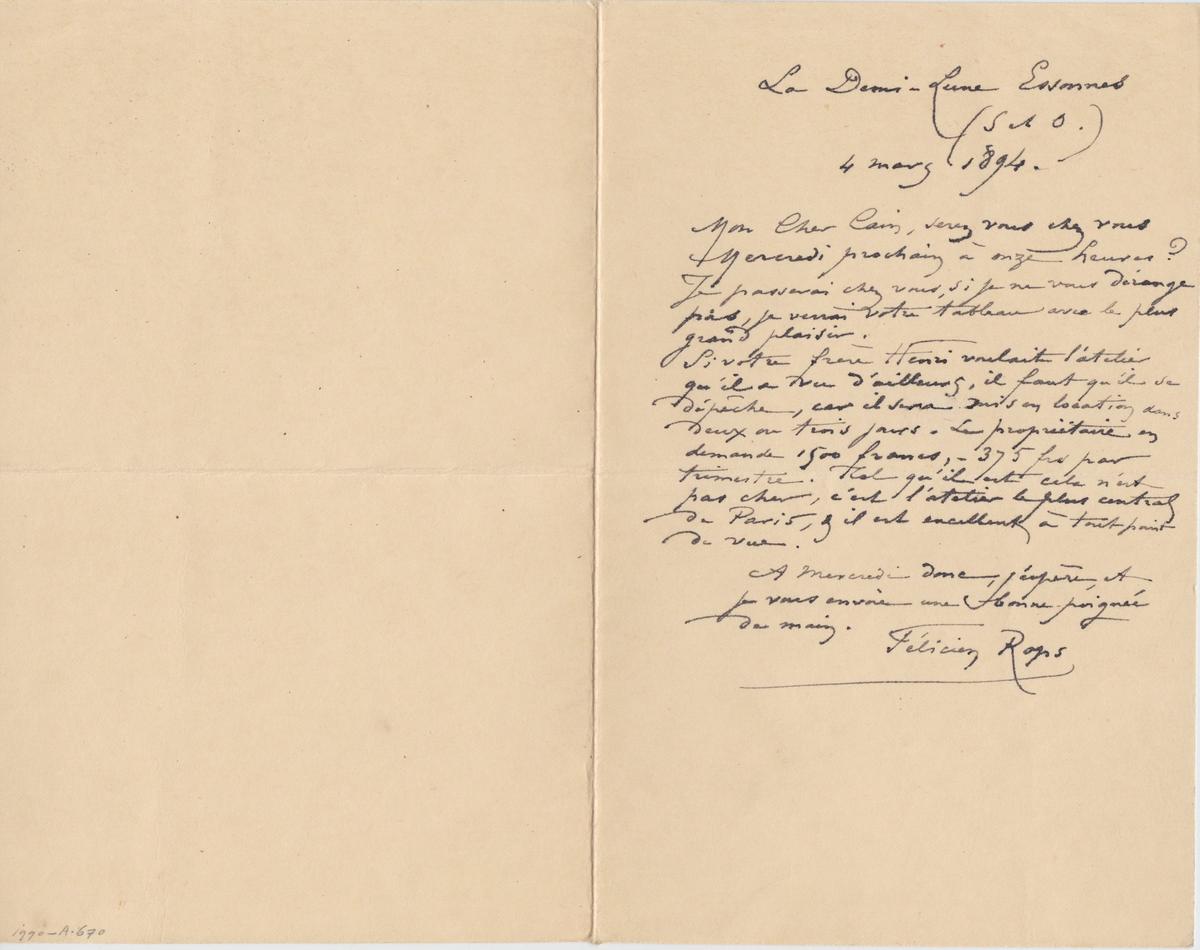 La Demi-Lune Essonnes
(S et O.)
4 mars 1894.
Mon Cher Cain, serez vous chez vous
Mercredi prochain à onze heures?
Je passerai chez vous, si je ne vous dérange
pas, je verrai votre tableau avec le plus
grand plaisir.
Si votre frère Henri voulait l'atelier
qu'il a vu d'ailleurs, il faut qu'il se
dépêche, car il sera mis en location dans
deux ou trois jours. Le propriétaire en
demande 1500 francs, - 375 frs par
trimestre. Tel qu'il est cela n'est
pas cher, c'est l'atelier le plus central
de Paris, & il est excellent à tout point
de vue.
A mercredi donc, j'espère, et
je vous envoie une bonne poignée
de main.
Félicien Rops
1990-A.670